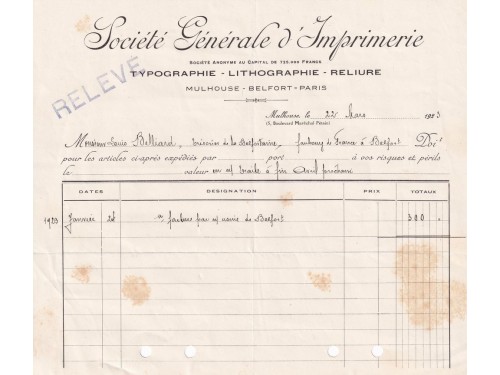 Société Générale d'Imprimerie
Société Anonyme au Capital de 725.000 Francs
RELEVÉ
TYPOGRAPHIE - LITHOGRAPHIE - RELIURE
MULHOUSE - BELFORT - PARIS
Mulhouse, le 22 Mars 1923
(8, Boulevard Maréchal Pétain)
Monsieur Louis Belliard, de la faubourg de France à Belfort Doit
pour les articles ci-après expédiés par port à vos risques et périls
le valeur en traite à fin Avril prochain
DATES DÉSIGNATION PRIX TOTAUX
1923 Janvier facture par usine de Belfort 300 "